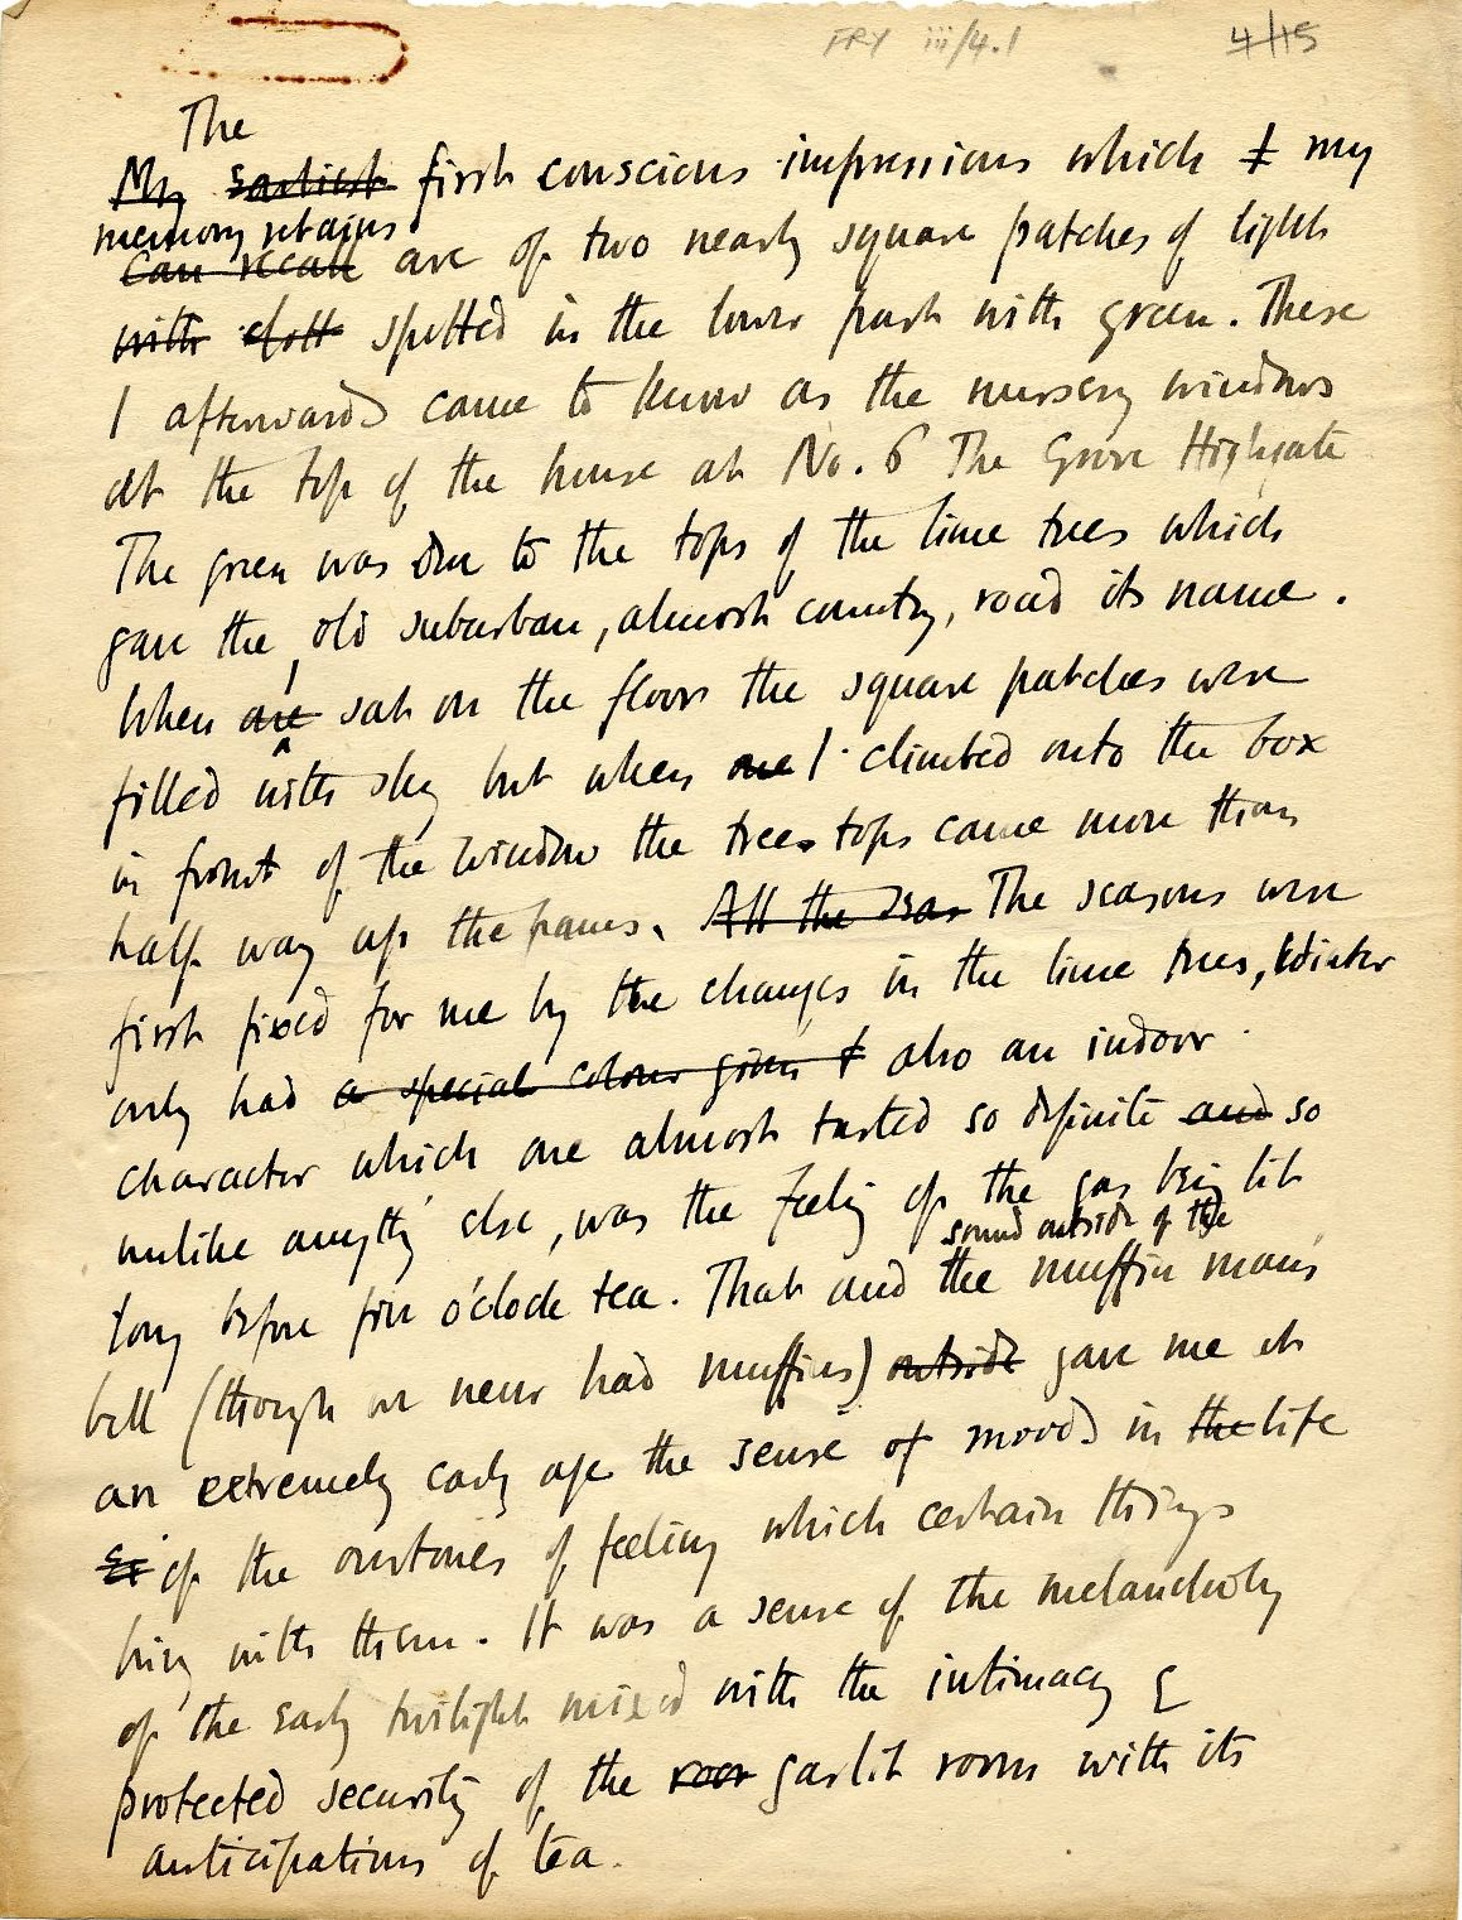 FRY iii/4.1 4/15
The
My earliest first conscious impressions which I my
memory retains
can recall are of two nearly square patches of light
with dott spotted in the lower part with green. These
I afterwards came to know as the nursery windows
at the top of the house at No. 6 The Grove Highgate
The green was due to the tops of the lime trees which
gave the old suburban, almost country, road its name.
When one I sat on the floor the square patches were
filled with sky but when one I climbed onto the box
in front of the window the trees tops came more than
half way up the panes. All the sea The seasons were
first fixed for me by the changes in the lime trees, Winter
only had a special colour given & also an indoor
character which one almost tasted so definite and so
unlike anything else, was the feeling of the gas being lit
sound outside of the
long before five o'clock tea. That and the muffin man's
bell (though we never had muffins) outside gave me at
an extremely early age the sense of moods in the life
of the overtones of feeling which certain things
bring with them. It was a sense of the melancholy
of the early twilight mixed with the intimacy &
protected security of the roor gaslit room with its
anticipations of tea.